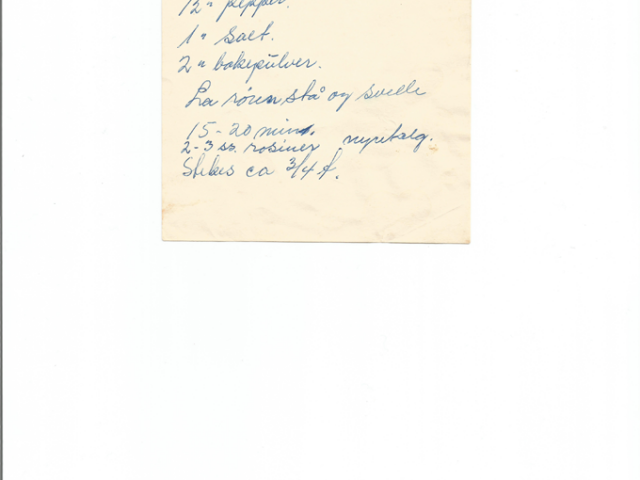 1/2 " pepper.
1 " Salt.
2 " bakepülver.
La røren stå og svelle
15-20 min.
2-3 ss. rosiner nyretalg.
Stekes ca 3/4 t.